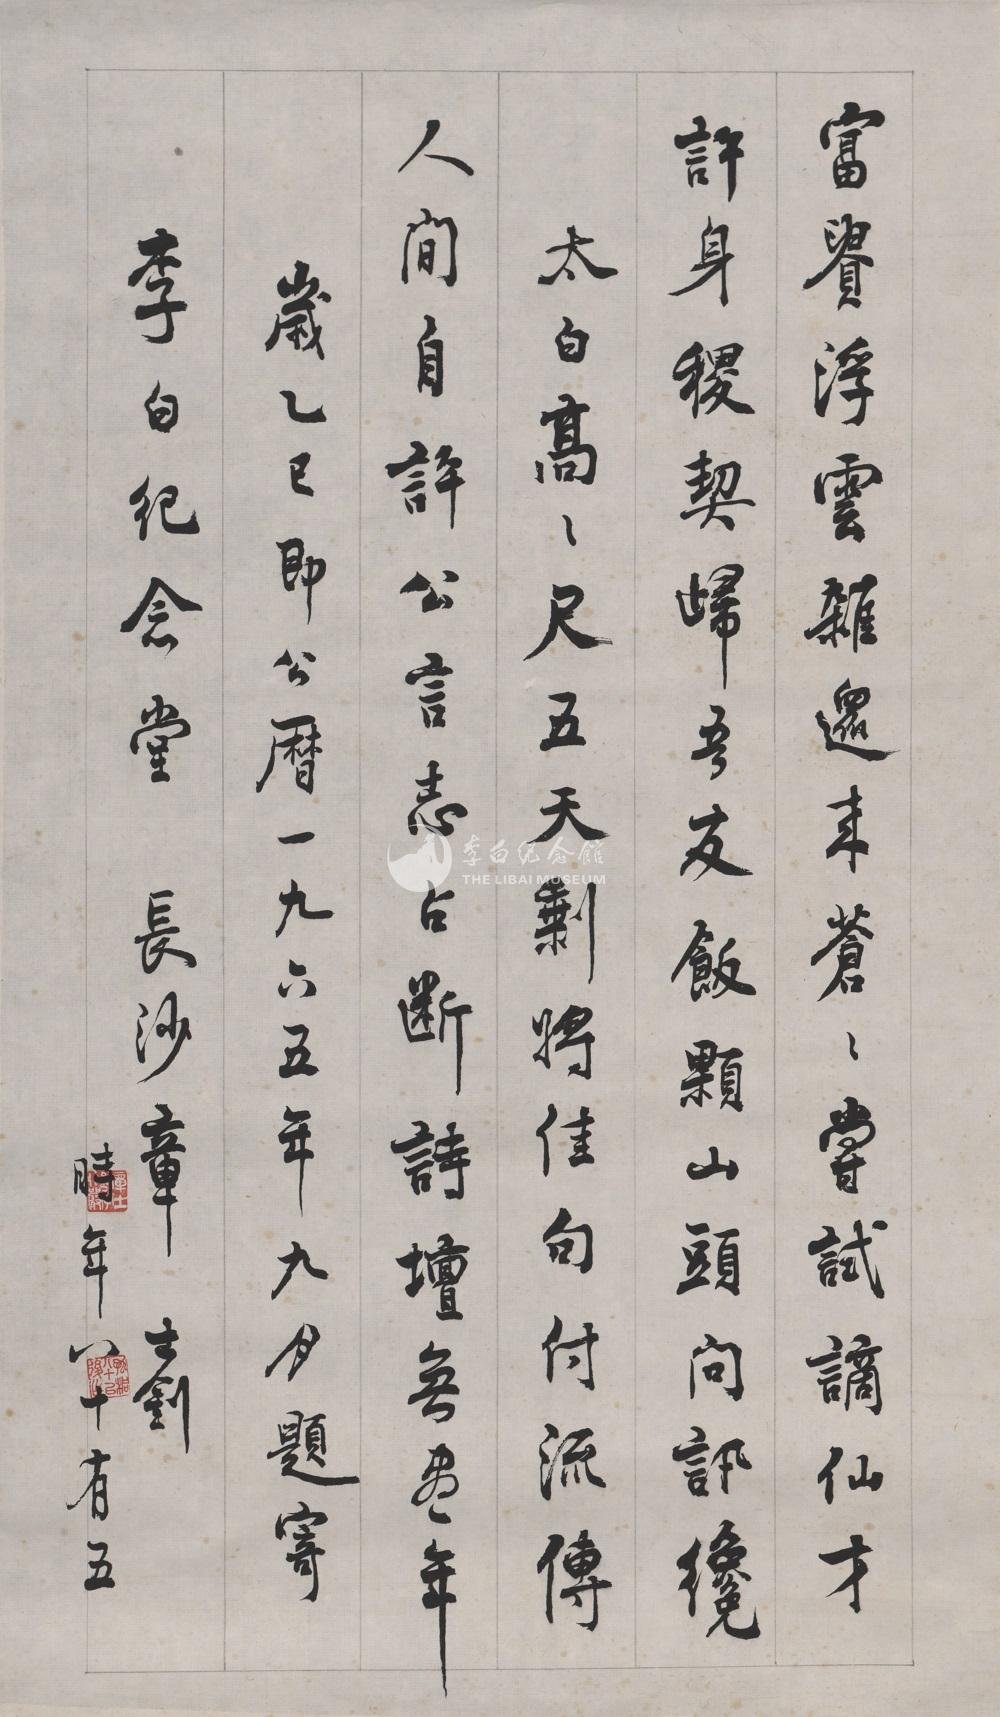 富貴浮雲雜遝来蒼〻嘗試謫仙才
許身稷契歸吾友飯顆山頭問訊纔
太白高〻尺五天剩將佳句付流傳
人間自許公言志占断詩壇無盡年
歲乙巳即公曆一九六五年九月題寄
李白纪念堂 長沙章士釗
時年八十有五
李白纪念馆
THE LIBAI MUSEUM